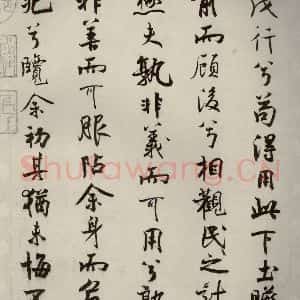 茂行兮苟得用此下土瞻
前而顧後兮相觀民之計
極夫孰非義而可用兮孰
非善而可服阽余身而危
死兮覽余初其猶未悔不
Shufawang.CN